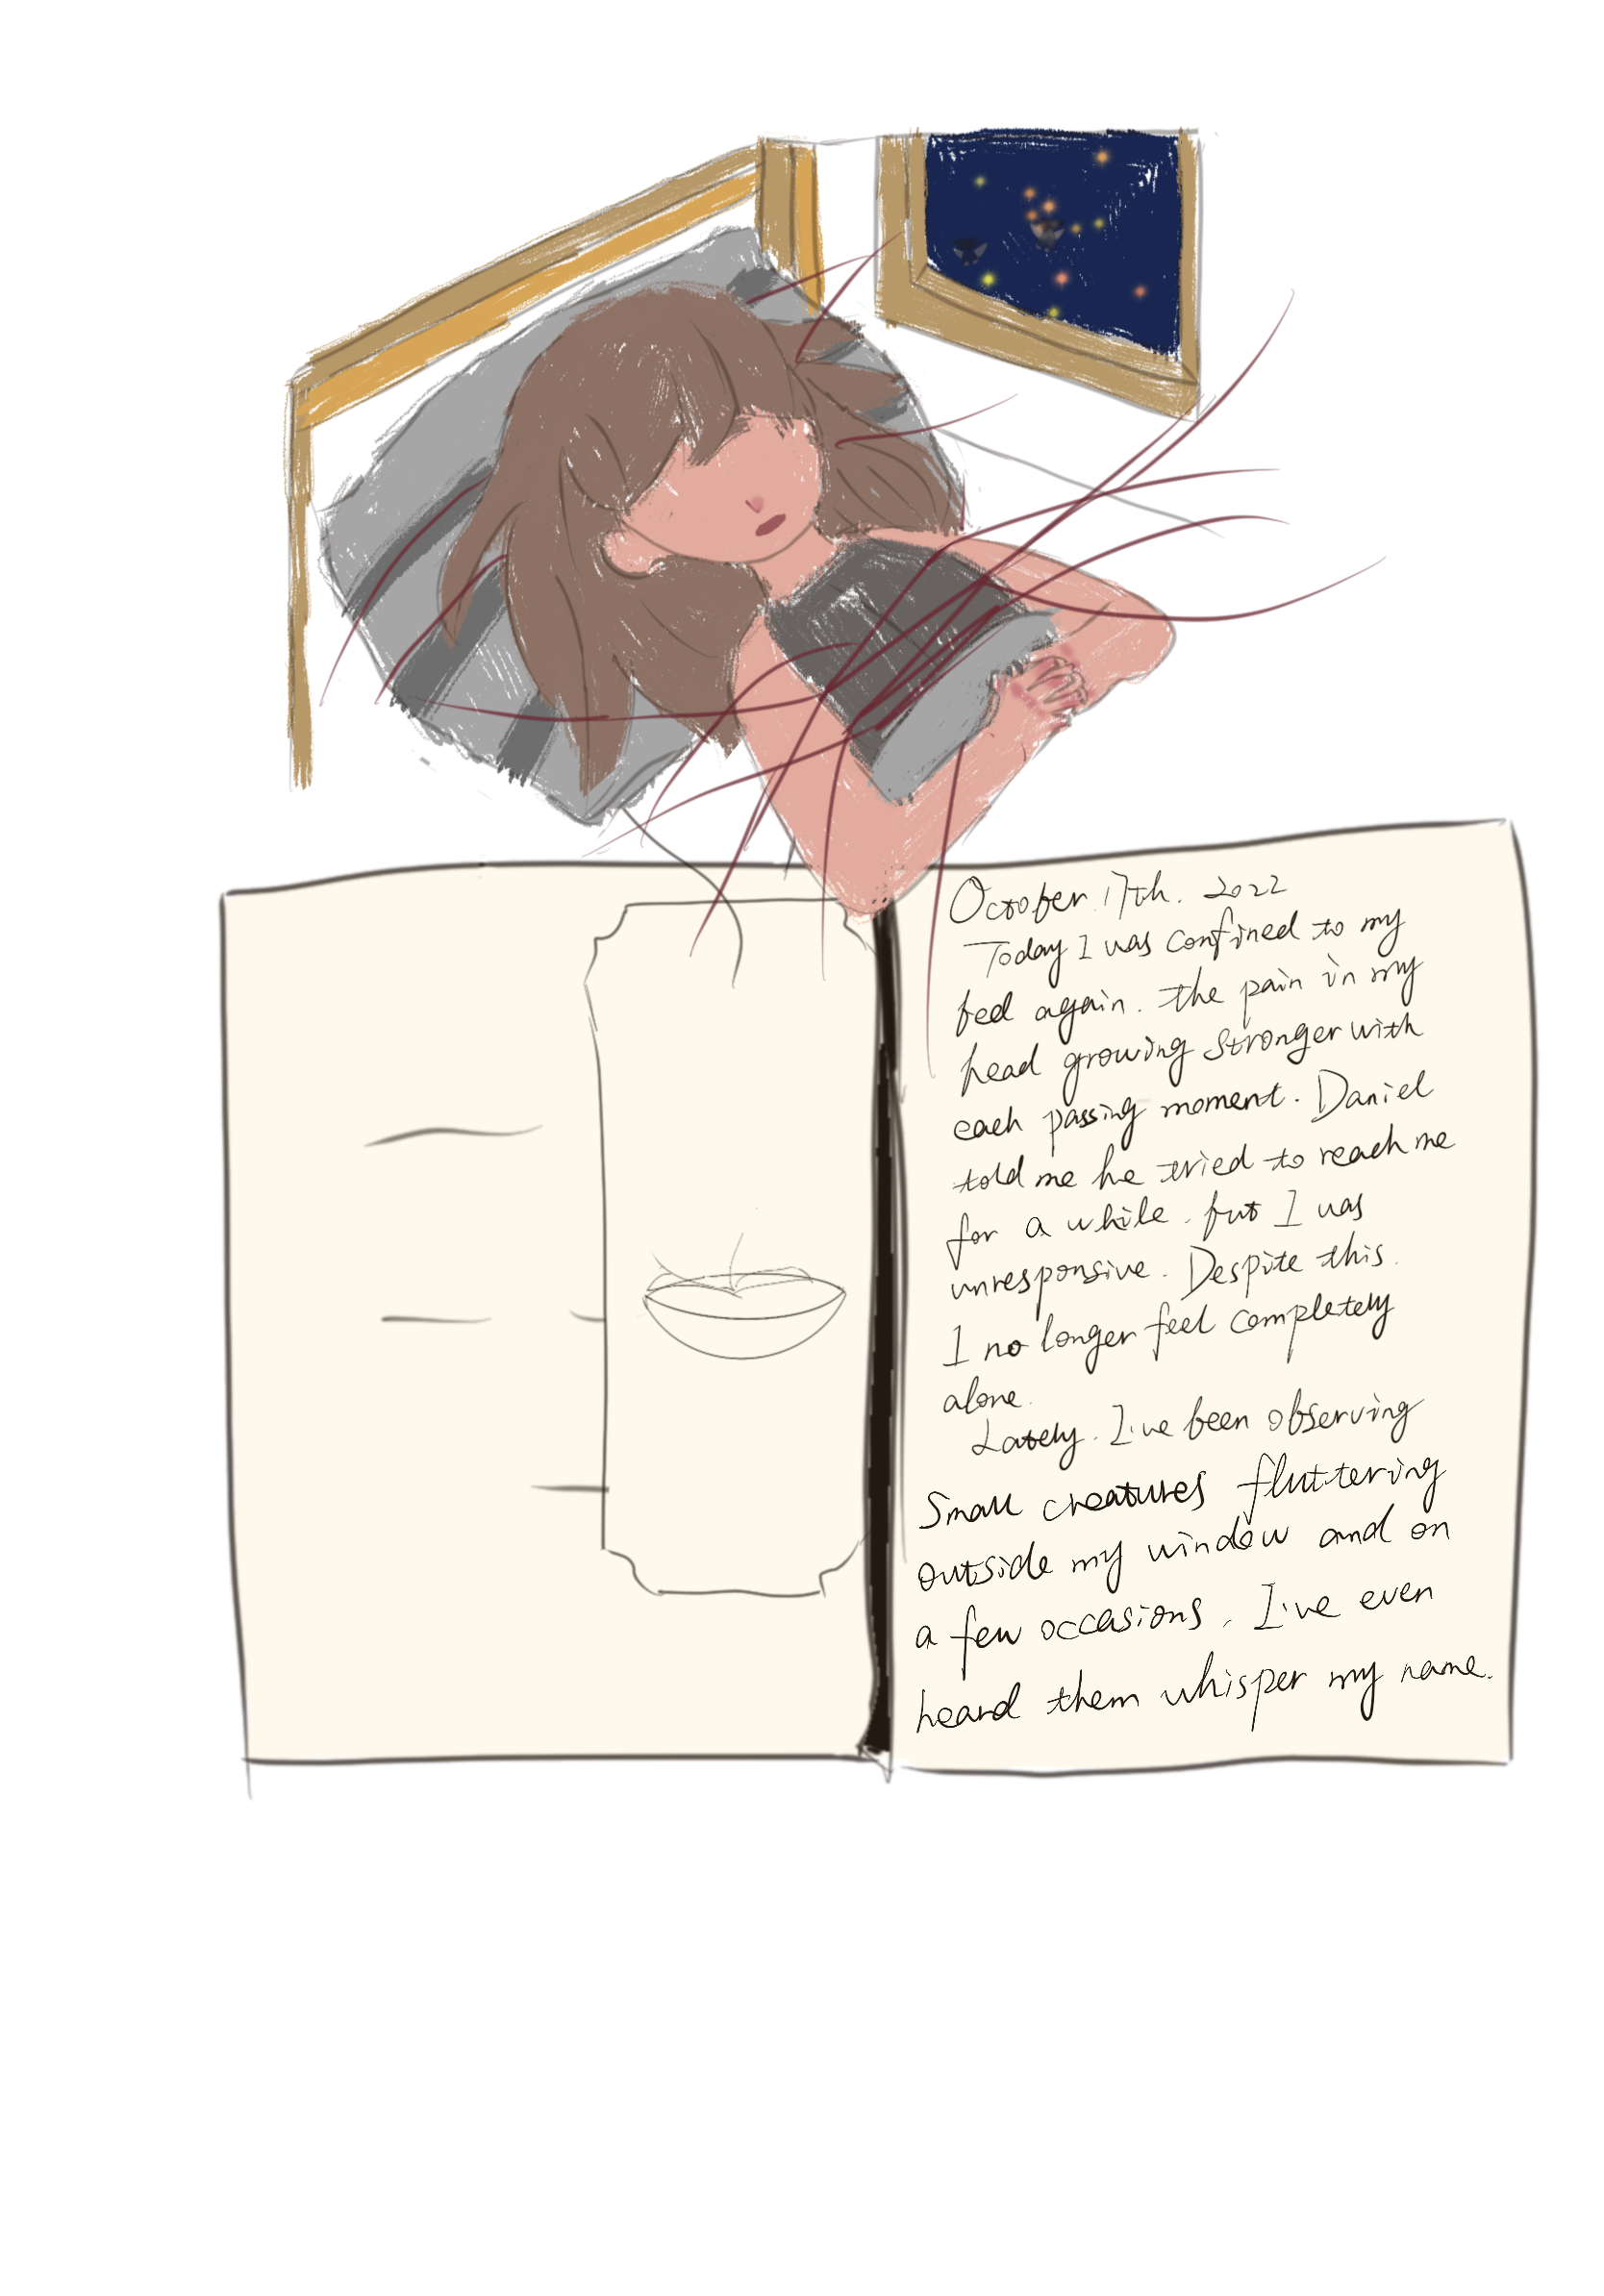 October 17th. 2022
Today I was confined to my
bed again. the pain in my
head growing stronger with
each passing moment. Daniel
told me he tried to reach me
for a while. but I was
unresponsive. Despite this.
I no longer feel completely
alone.
Lately. I've been observing
Small creatures fluttering
outside my window and on
a few occasions, I've even
heard them whisper my name.